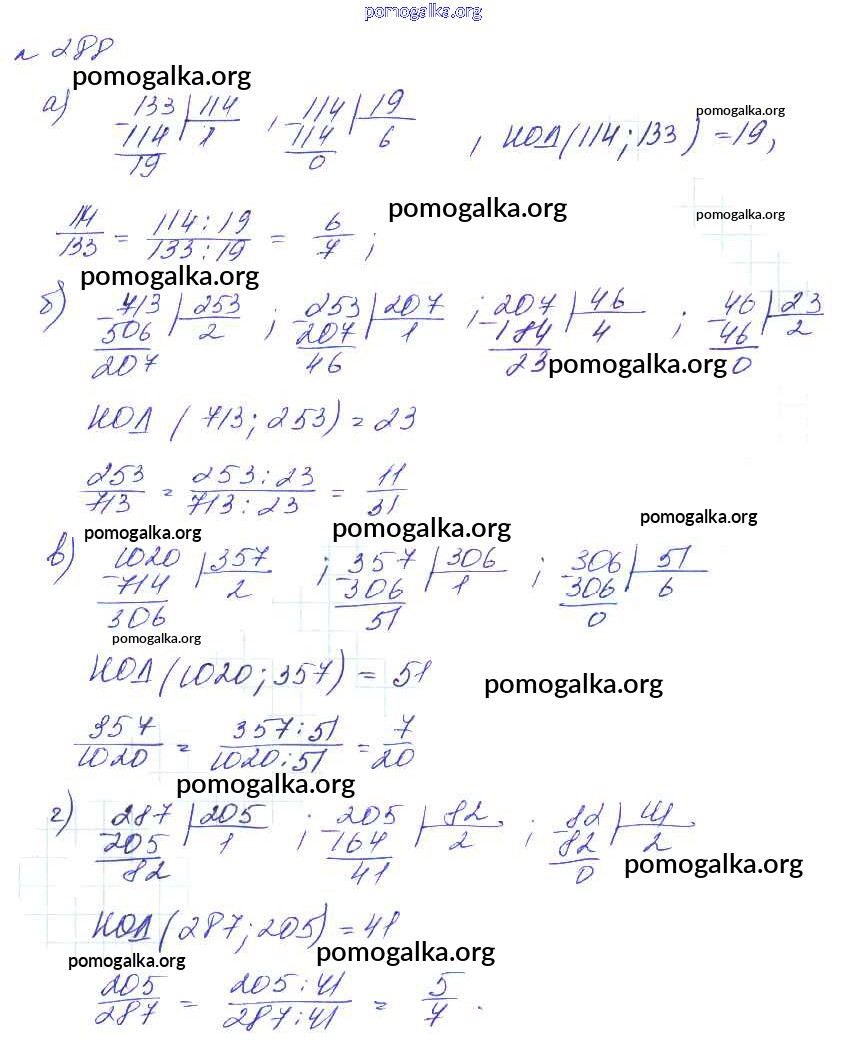 pomogalka.org
n 288
pomogalka.org
а) 133 | 114 , 114 | 19 pomogalka.org
-114 | 1 -114 | 6 , НОД(114;133) = 19,
19 0
114/133 = 114:19/133:19 = 6/7 ; pomogalka.org pomogalka.org
pomogalka.org
б) 713 | 253 ; 253 | 207 ; 207 | 46 ; 46 | 23
-506 | 2 -207 | 1 -184 | 4 -46 | 2
207 46 23 pomogalka.org 0
НОД (713; 253) = 23
253/713 = 253:23/713:23 = 11/31
pomogalka.org pomogalka.org pomogalka.org
в) 1020 | 357 ; 357 | 306 ; 306 | 51
-714 | 2 -306 | 1 -306 | 6
306 51 0
pomogalka.org
НОД(1020;357) = 51
pomogalka.org
357/1020 = 357:51/1020:51 = 7/20
pomogalka.org
г) 287 | 205 ; 205 | 82 ; 82 | 41
-205 | 1 -164 | 2 -82 | 2
82 41 0 pomogalka.org
НОД(287;205) = 41
pomogalka.org pomogalka.org
205/287 = 205:41/287:41 = 5/7 .